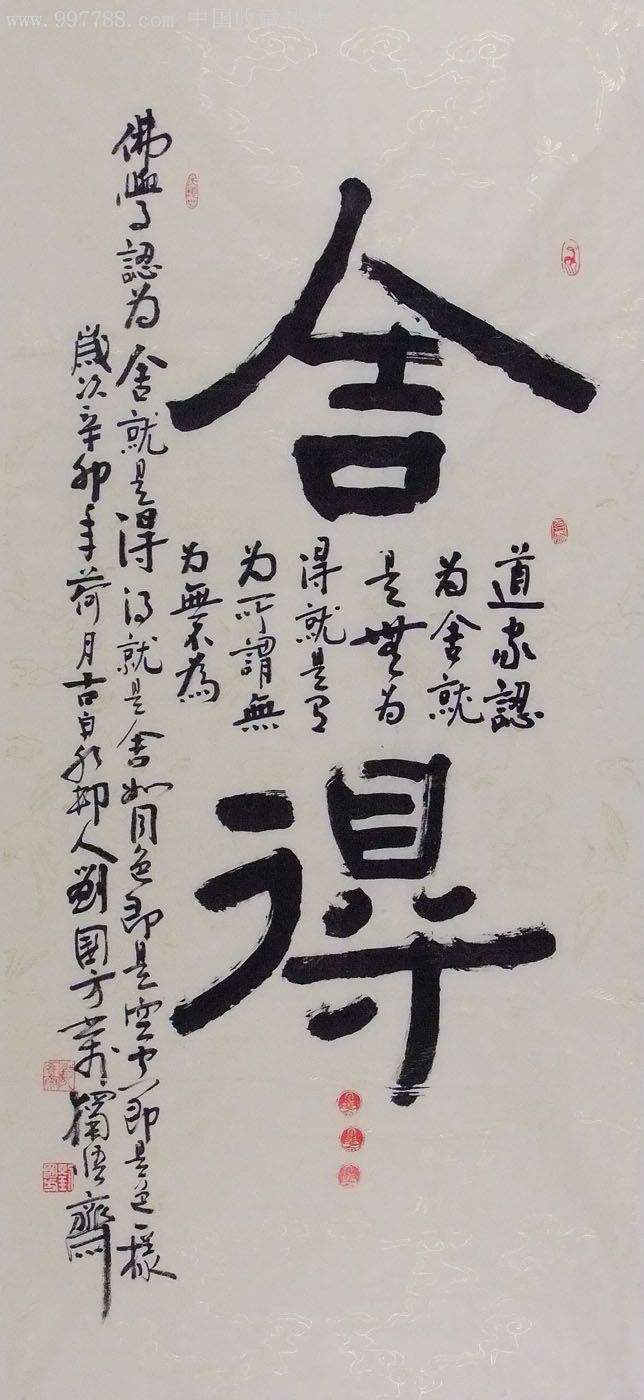 www.997788.com 中国收藏热线
舍
得
道家認
为舍就
是無为
得就是有
为所謂無
为無不為
佛學認为舍就是得得就是舍如同色即是空空即是色一樣
歲次辛卯年荷月吉日於柳人劉国方書獨悟齋